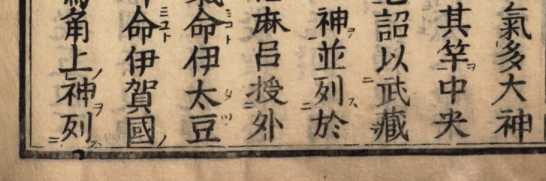 氣多大神
其竿中央
詔以武藏
神並列於
麻呂授外
命伊太豆
命伊賀國
角上神列